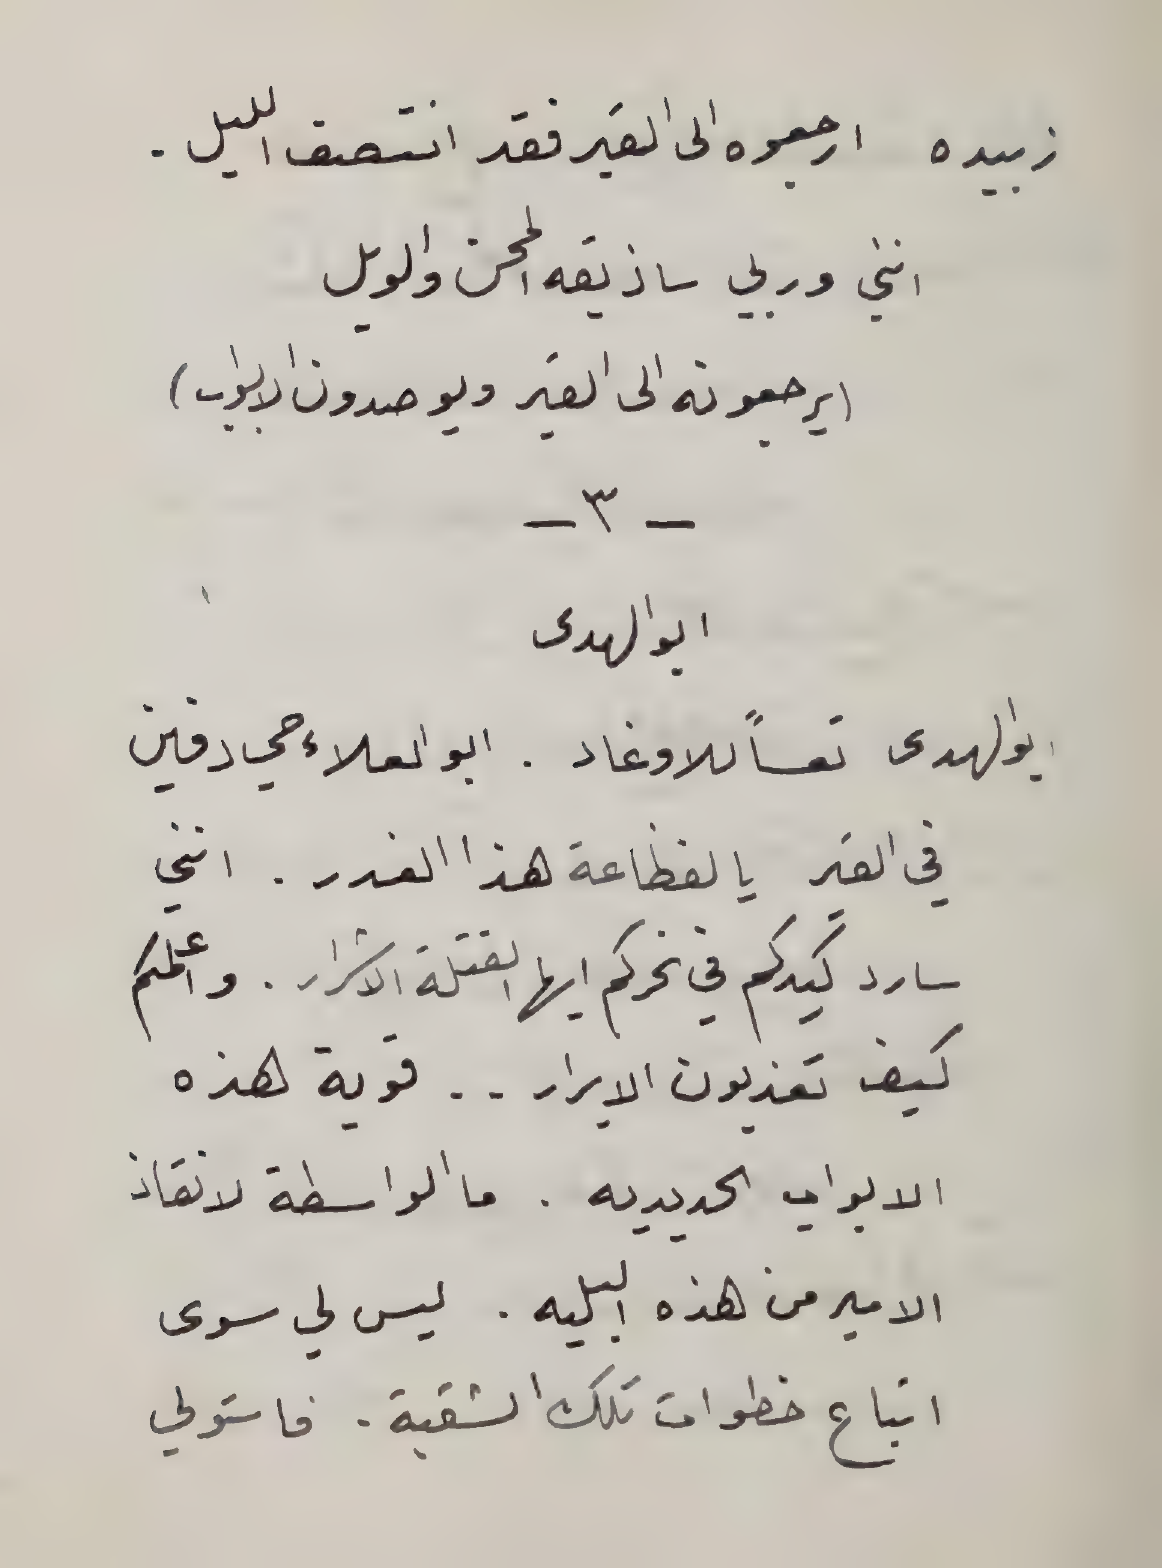 زبيده ارجعوه الى القبر فقد انتصف الليل .
انني وربي ساذيقه المحن والويل
(يرجعونه الى القبر ويوصدون الابواب)
— ٣ —
ابو الهدى
ابو الهدى تعساً للاوغاد . ابو العلاء حي دفين
في القبر يا لفظاعة هذا الغدر . انني
سارد كيدكم في نحركم ايها القتلة الاشرار . واعلمكم
كيف تعذبون الابرار .. قوية هذه
الابواب الحديديه . ما الواسطة لانقاذ
الامير من هذه البليه . ليس لي سوى
اتباع خطوات تلك الشقية . فاستولي